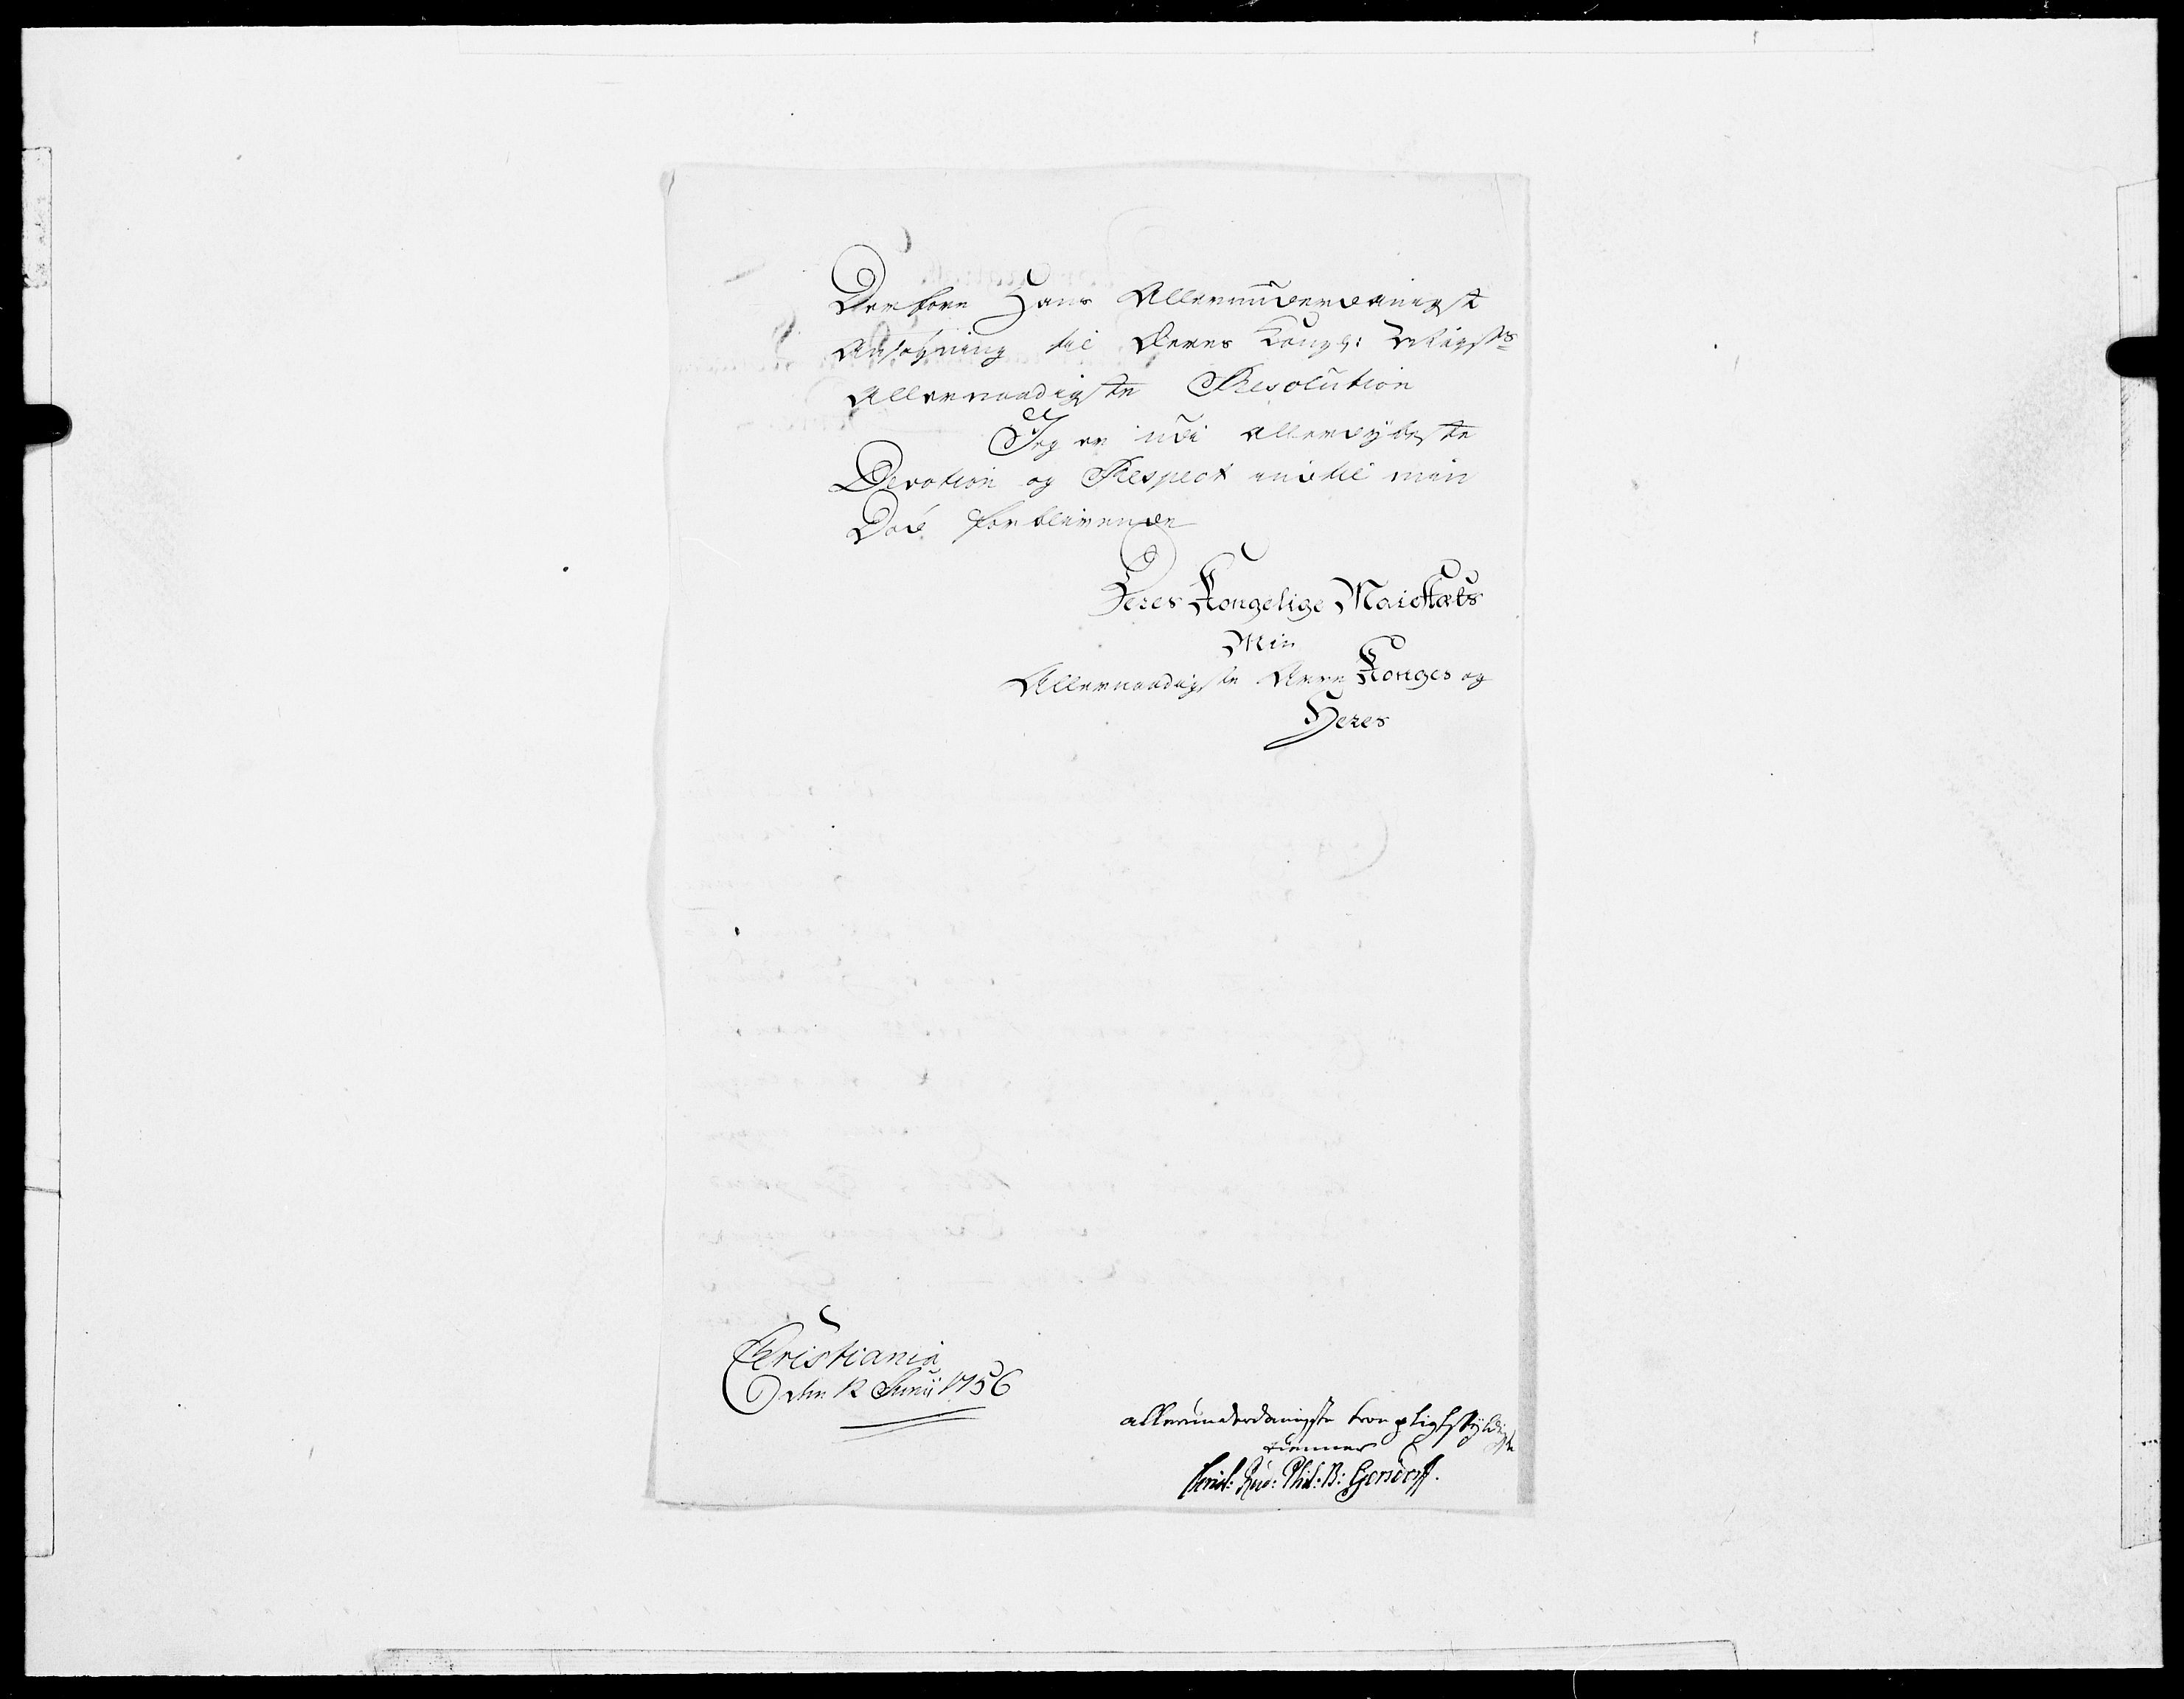 Derfore Hans Allerunderdanigst
Ansøgning til Deres Kongl: Mayests
Allernaadigste Resolution
Jeg er udi allerdybeste
Devotion og Respect indtil min
Død forblivende
Deres Kongelige Maiestæts
Min
Allernaadigste Arve Konges og
Heres
Christiania
den 12 Junij 1756
allerunderdanigste troe pligtskyldigste
tienner
Christ: Rud: Phil: B: Gersdorff.